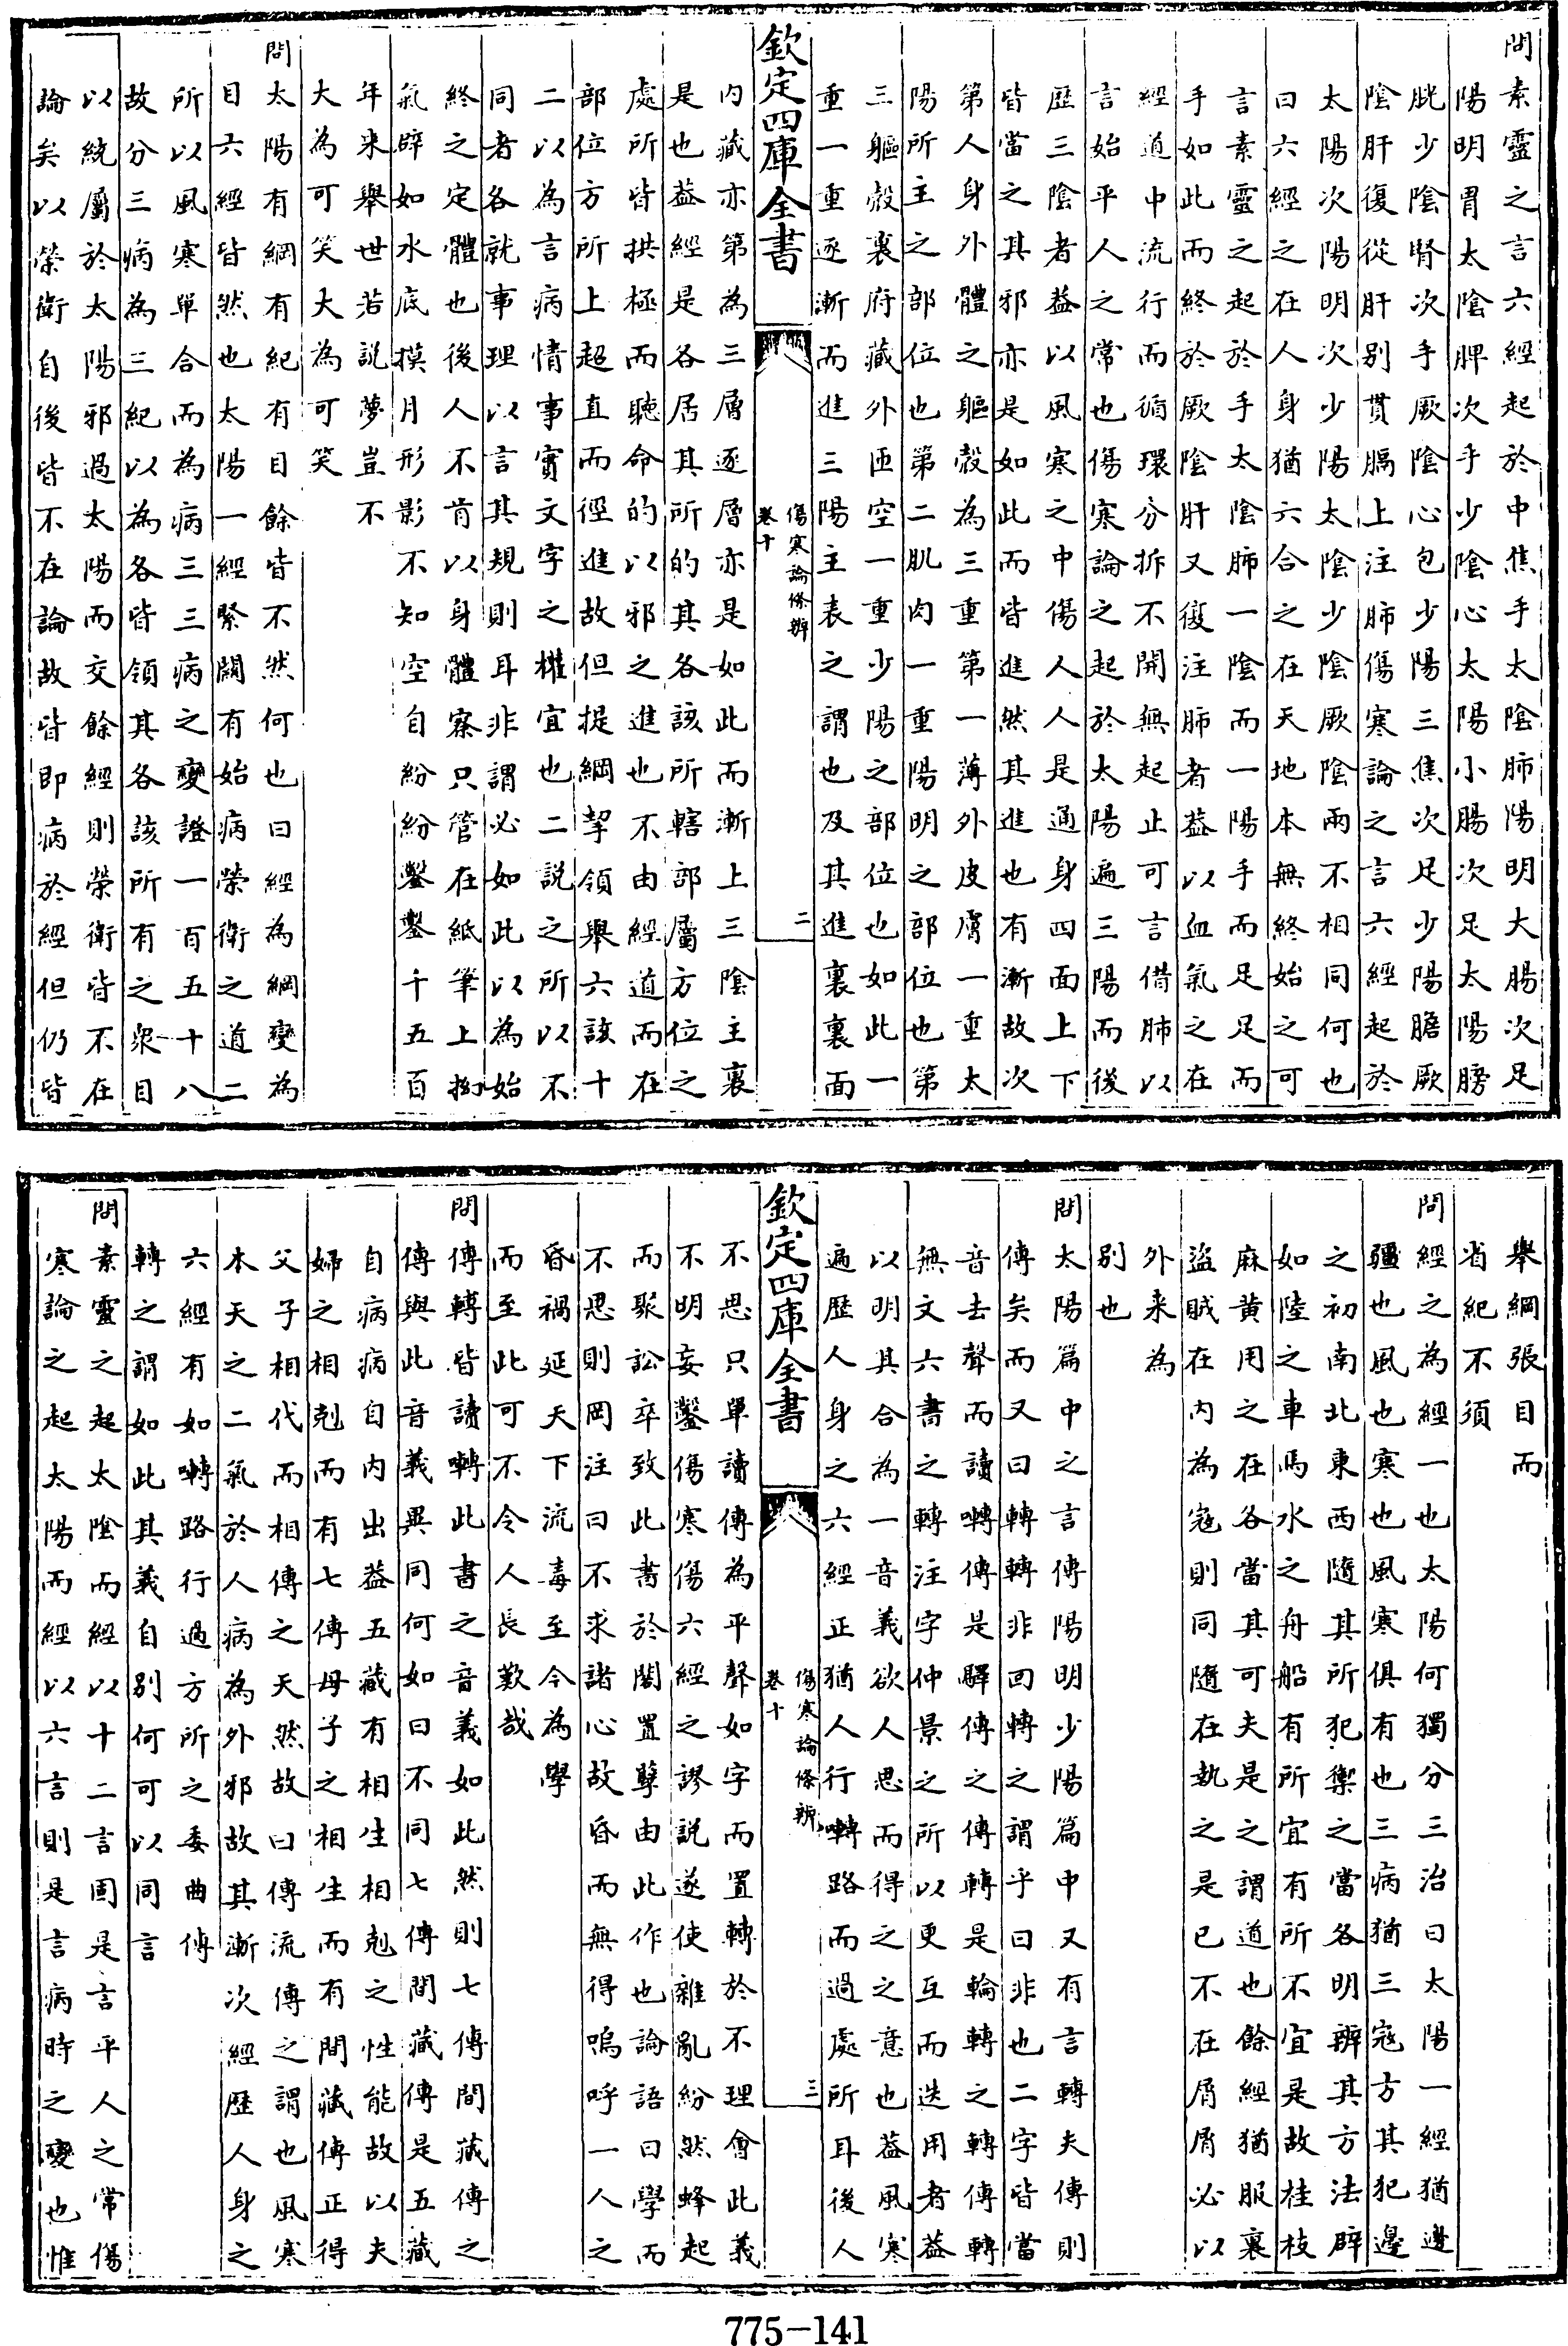 問素靈之言六經起於中焦手太陰肺陽明大腸次足
陽明胃太陰脾次手少陰心太陽小腸次足太陽膀
胱少陰腎次手厥陰心包少陽三焦次足少陽膽厥
陰肝復從肝别貫膈上注肺傷寒論之言六經起於
太陽次陽明次少陽太陰少陰厥陰兩不相同何也
曰六經之在人身猶六合之在天地本無終始之可
言素靈之起於手太陰肺一陰而一陽手而足足而
手如此而終於厥陰肝又復注肺者葢以血氣之在
經道中流行而循環分拆不開無起止可言借肺以
言始平人之常也傷寒論之起於太陽遍三陽而後
歴三陰者葢以風寒之中傷人人是通身四面上下
皆當之其邪亦是如此而皆進然其進也有漸故次
第人身外體之軀殼為三重第一薄外皮膚一重太
陽所主之部位也第二肌肉一重陽明之部位也第
三軀殼裏府藏外匝空一重少陽之部位也如此一
重一重逐漸而進三陽主表之謂也及其進裏裏面
欽定四庫全書
傷寒論條辨
卷十
二
内藏亦第為三層逐層亦是如此而漸上三陰主裏
是也葢經是各居其所的其各該所轄部屬方位之
處所皆拱極而聽命的以邪之進也不由經道而在
部位方所上超直而徑進故但提綱挈領舉六該十
二以為言病情事實文字之權宜也二説之所以不
同者各就事理以言其規則耳非謂必如此以為始
終之定體也後人不肯以身體察只管在紙筆上拗
氣辟如水底摸月形影不知空自紛紛鑿鑿千五百
年来舉世若説夢豈不
大為可笑大為可笑
問太陽有綱有紀有目餘皆不然何也曰經為綱變為
目六經皆然也太陽一經緊關有始病榮衛之道二
所以風寒單合而為病三三病之變證一百五十八
故分三病為三紀以為各皆領其各該所有之衆目
以統屬於太陽邪過太陽而交餘經則榮衛皆不在
論矣以榮衛自後皆不在論故皆即病於經但仍皆
舉綱張目而
省紀不須
問經之為經一也太陽何獨分三治曰太陽一經猶邊
疆也風也寒也風寒俱有也三病猶三寇方其犯邊
之初南北東西隨其所犯禦之當各明辨其方法辟
如陸之車馬水之舟船有所宜有所不宜是故桂枝
麻黄用之在各當其可夫是之謂道也餘經猶服裏
盜賊在内為寇則同隨在執之是已不在屑屑必以
外来為
别也
問太陽篇中之言傳陽明少陽篇中又有言轉夫傳則
傳矣而又曰轉轉非回轉之謂乎曰非也二字皆當
音去聲而讀囀傳是驛傳之傳轉是輪轉之轉傳轉
無文六書之轉注字仲景之所以更互而迭用者葢
以明其合為一音義欲人思而得之之意也葢風寒
遍歴人身之六經正猶人行囀路而過處所耳後人
欽定四庫全書
傷寒論條辨
卷十
三
不思只單讀傳為平聲如字而置轉於不理會此義
不明妄鑿傷寒傷六經之謬説遂使雜亂紛然蜂起
而聚訟卒致此書於闇置孽由此作也論語曰學而
不思則罔注曰不求諸心故昏而無得嗚呼一人之
昏禍延天下流毒至今為學
而至此可不令人長歎哉
問傳轉皆讀囀此書之音義如此然則七傳間藏傳之
傳與此音義異同何如曰不同七傳間藏傳是五藏
自病病自内出葢五藏有相生相尅之性能故以夫
婦之相尅而有七傳母子之相生而有間藏傳正得
父子相代而相傳之天然故曰傳流傳之謂也風寒
本天之二氣於人病為外邪故其漸次經歴人身之
六經有如囀路行過方所之委曲傳
轉之謂如此其義自别何可以同言
問素靈之起太陰而經以十二言固是言平人之常傷
寒論之起太陽而經以六言則是言病時之變也惟
775-141